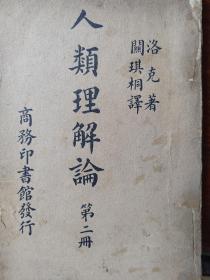 洛克著
關琪桐譯
人類理解論
第二冊
商務印書館發行